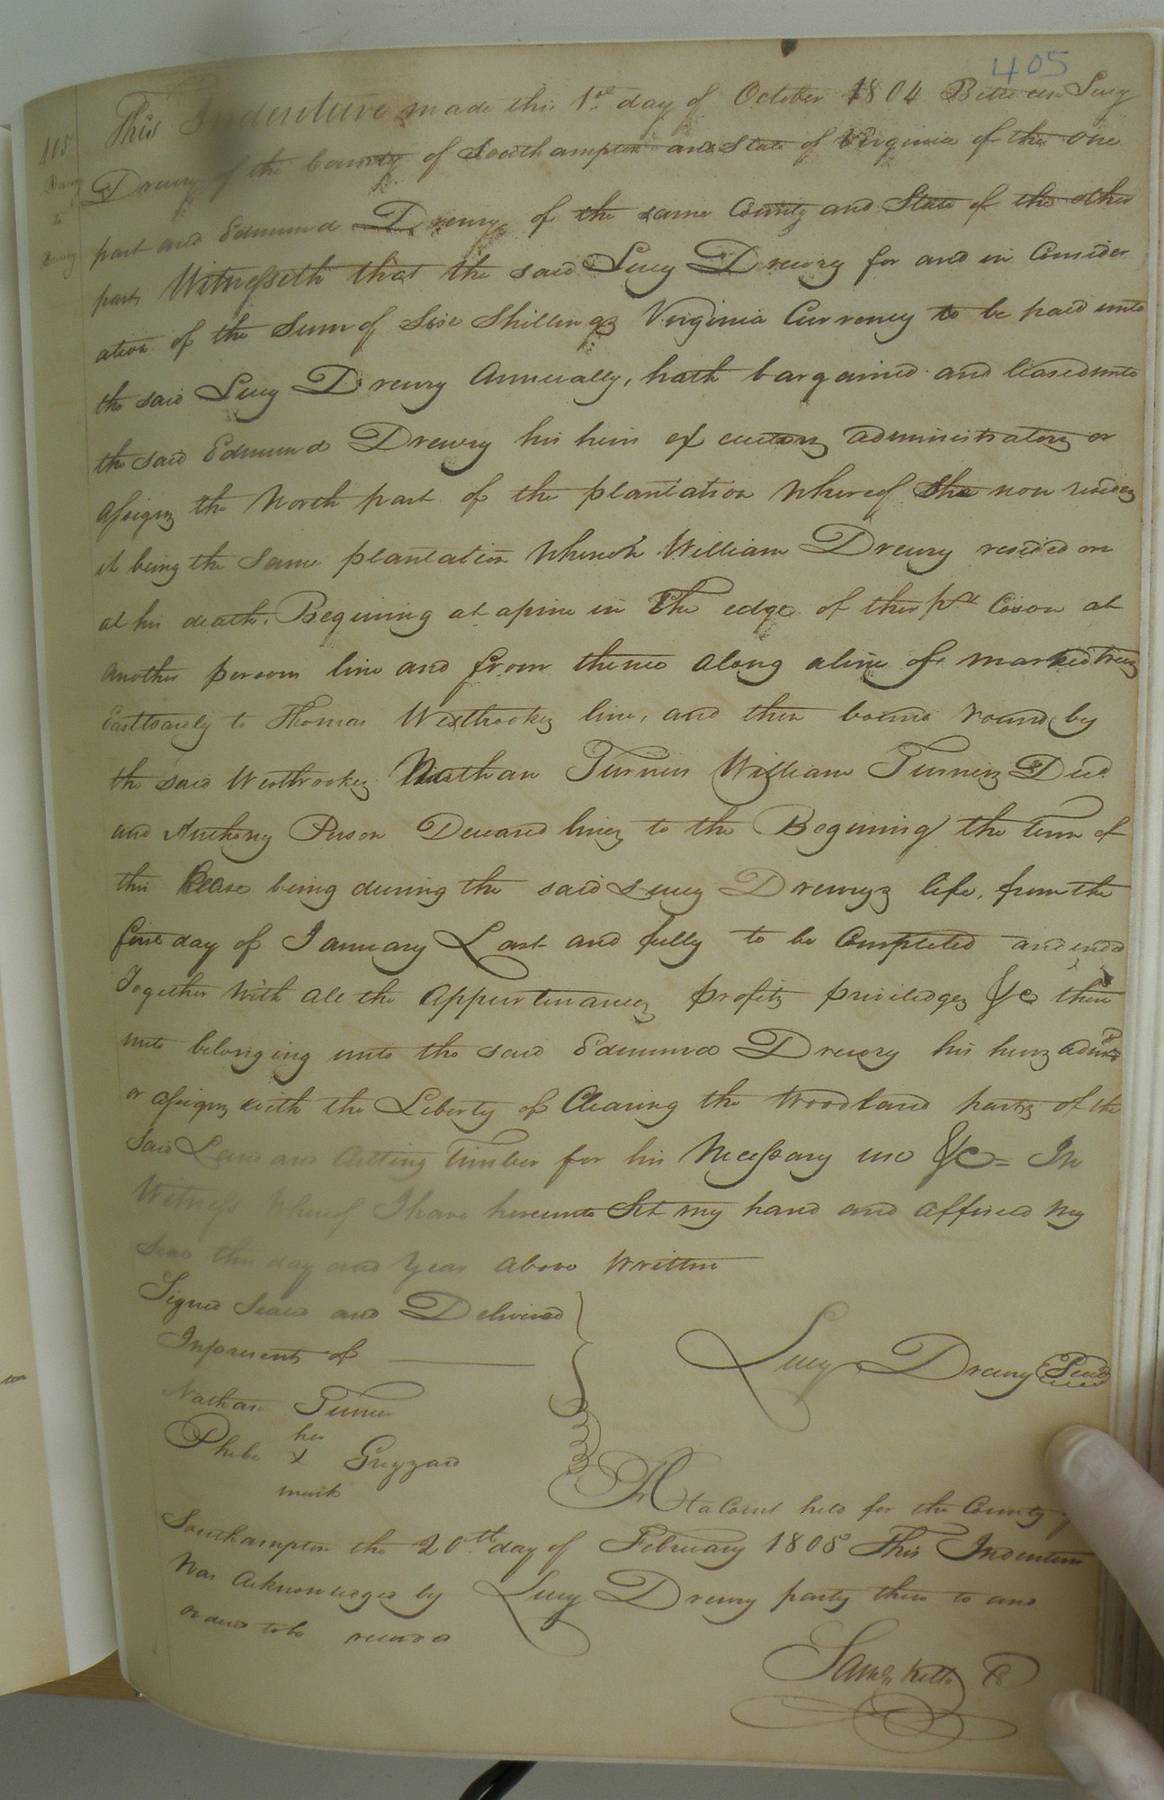 405
This Indenture made this 1st day of October 1804 Between Lucy
115
Drewry of the County of Southampton and State of Virginia of the one
Drewry
to
Drewry
part and Edmund Drewry of the same County and State of the other
part Witnesseth that the said Lucy Drewry for and in Consider
ation of the Sum of Six Shillings Virginia Currency to be paid unto
the said Lucy Drewry Annually, hath bargained and leased unto
the said Edmund Drewry his heirs executors administrators or
assigns the North part of the plantation whereof she now resides
it being the same plantation whereon William Drewry resided on
at his death. Begining at a pine in the edge of the Coson at
Another persons line and from thence along a line of marked trees
Eastwardly to Thomas Westbrookes line, and then bound round by
the said Westbrookes Nathan Turners William Turners Decd
and Anthony Person Deceased lines to the Begining the term of
this lease being during the said Lucy Drewrys life, from the
first day of January Last and fully to be Completed and ended
Together with all the Appurtenances profits priviledges &c there
unto belonging unto the said Edmund Drewry his heirs admrs
or assigns with the Liberty of Clearing the woodland parts of the
said Land and Cutting Timber for his Necessary use &c = In
Witness whereof I have hereunto Set my hand and affixed my
Seal this day and Year above written
Signed Sealed and Delivered
Inpresents of
Lucy Drewry Seal
Nathan Turner
her
Phebe x Grizzard
mark
At a Court held for the County of
Southampton the 20th day of February 1805 This Indenture
was Acknowledged by Lucy Drewry party there to and
ordered to be record
Saml Kello C